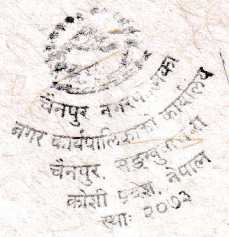 चैनपुर नगरपालिका
नगर कार्यपालिकाको कार्यालय
चैनपुर, सङ्खुवासभा
कोशी प्रदेश, नेपाल
स्था: २०७३